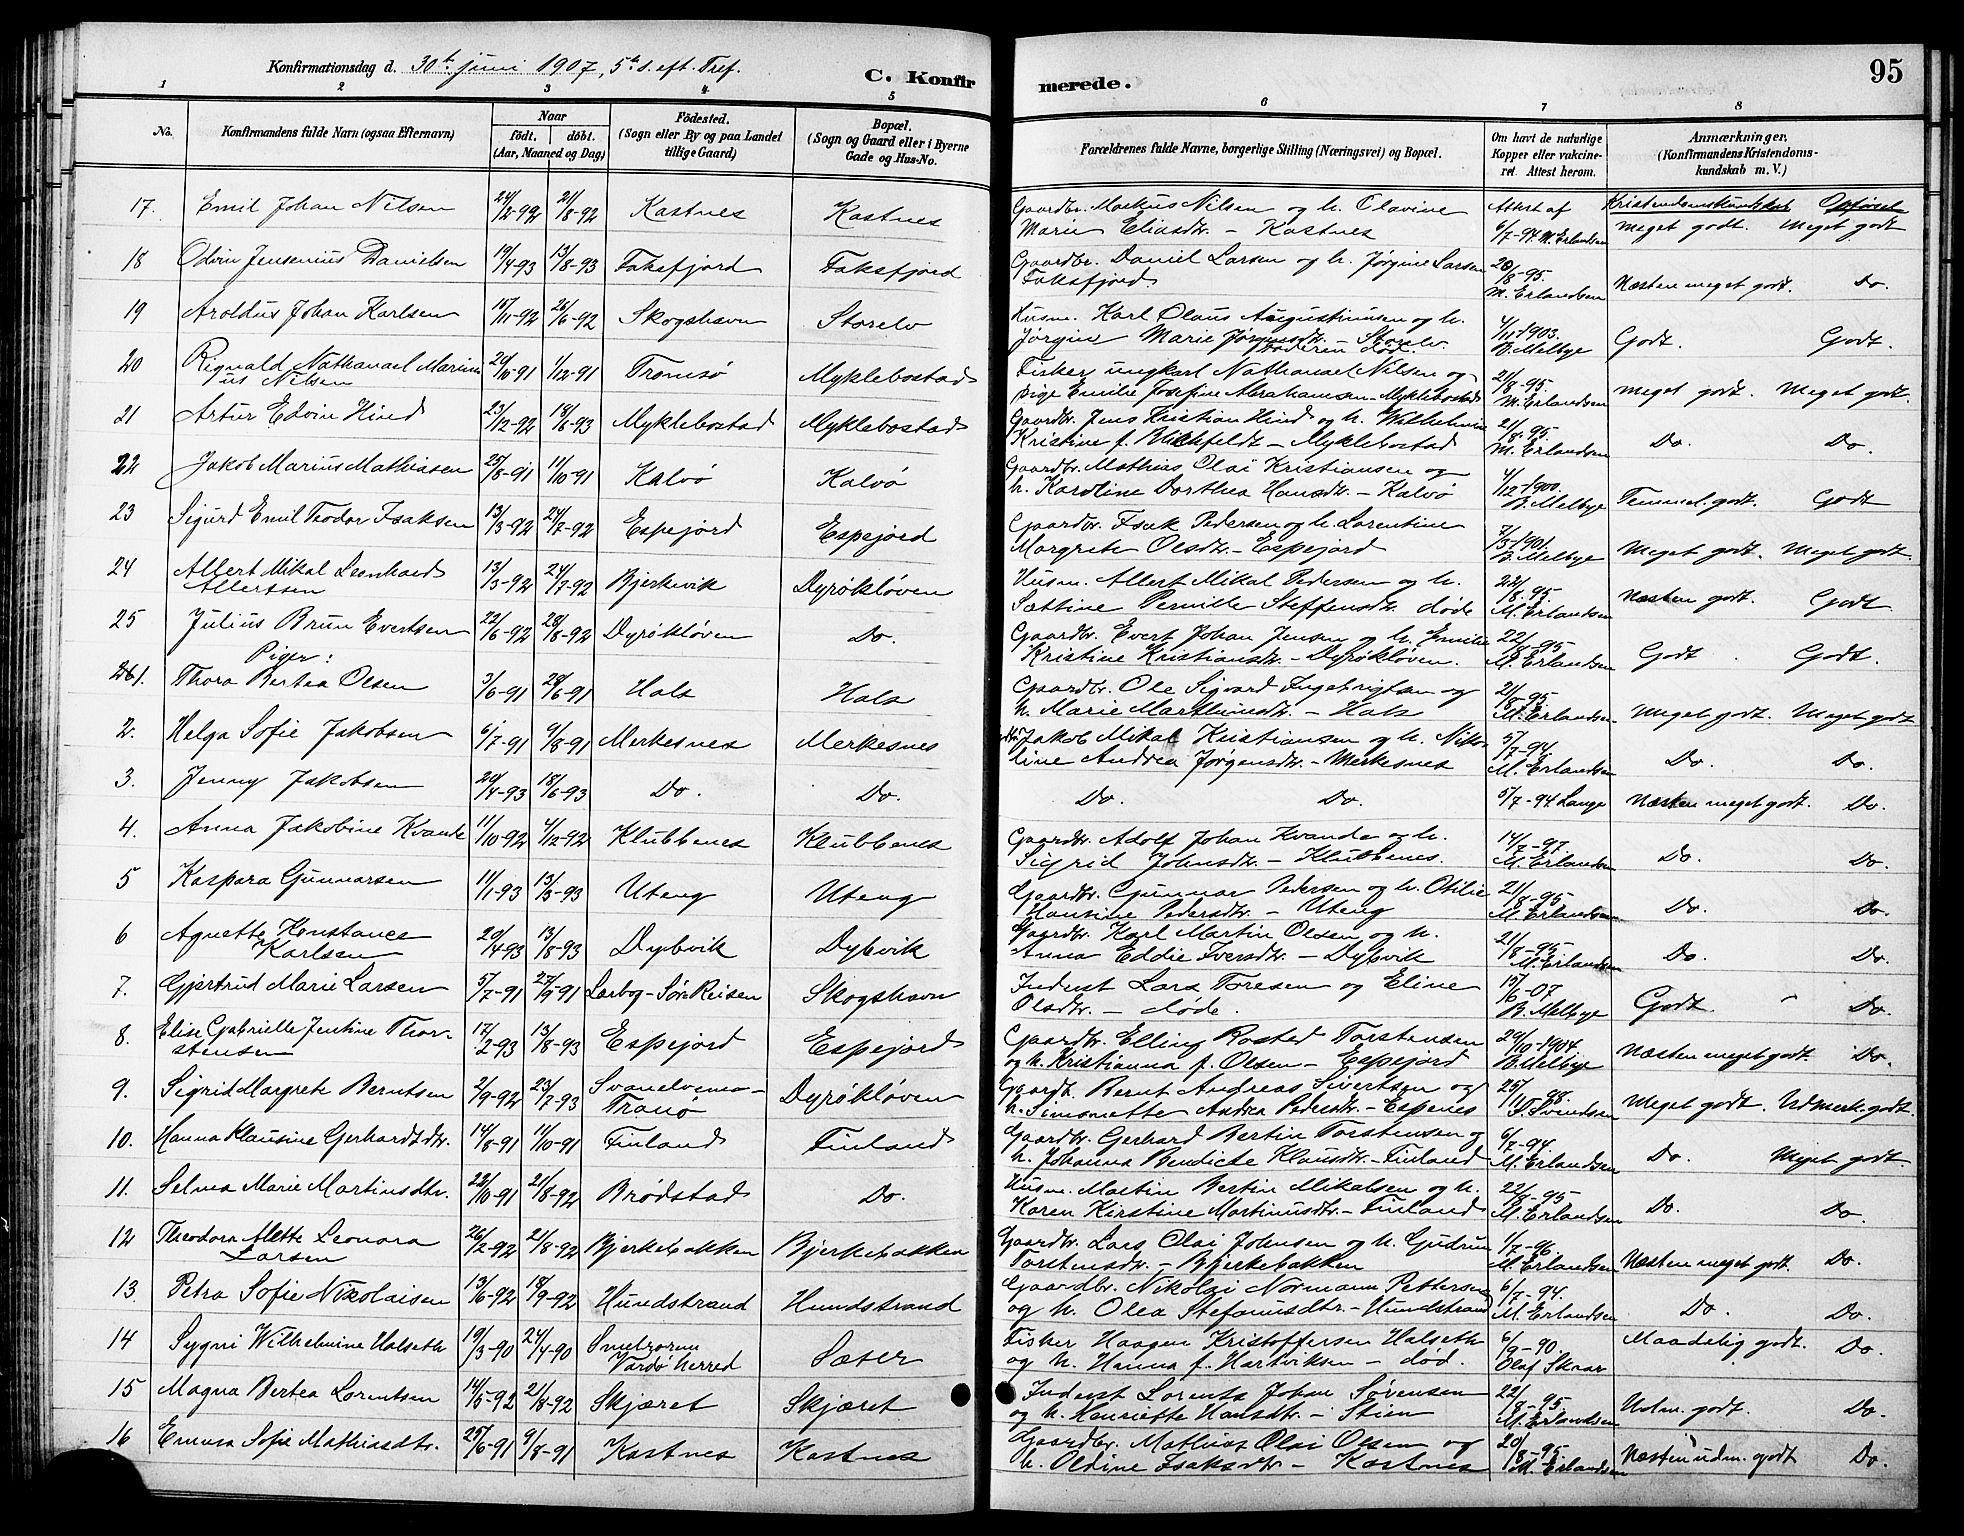 Konfirmationsdag d. 30te juni 1907, 5te s. eft. Tref.
C. Konfirmerede.
95
1 2 3 4 5 6 7 8
No. | Konfirmandens fulde Navn (ogsaa Efternavn) | Naar födt. döbt. (Aar, Maaned og Dag) | Födested. (Sogn eller By og paa Landet tillige Gaard) | Bopæl. (Sogn og Gaard eller i Byerne Gade og Hus-No. | Forældrenes fulde Navne, borgerlige Stilling (Næringsvei) og Bopæl. | Om havt de naturlige Kopper eller vakcineret. Attest herom. | Anmærkninger. (Konfirmandens Kristendomskundskab m. V.)
Kristendomskundskab Opförsel
17. Emil Johan Nilsen 24/2-92 21/8-92 Kastnes Kastnes Gaardbr. Markus Nilsen og h. Olavine Marie Eliasdtr. – Kastnes Attest af 6/7-94. M. Erlandsen Meget godt. Meget godt
18 Odin Jensenius Danielsen 19/4-93 13/8-93 Faksfjord Faksfjord Gaardbr. Daniel Larsen og h. Jørgine Larsen Faksfjord. 20/8-95. M. Erlandsen Næsten meget godt. Do.
19 Aroldus Johan Karlsen 15/11-92 26/6-92 Skogshavn Storelv Husm. Karl Olaus Augustinusen og h. Jørgine Marie Jørginsdtr. Storelv. 4/11-1903. B. Melbye Godt. Godt.
20 Rignald Nathanael Marinius Nilsen 24/10-91 1/12-91 Tromsø Myklebostad Moderen død. Fisker ungkarl Nathanael Nilsen og pige Emilie Josefine Abrahamsen Myklebostad 21/8-95. M. Erlandsen Meget godt. Meget godt.
21 Artur Edvin Hind 23/12-92 18/6-93 Myklebostad Myklebostad Gaardbr. Jens Kristian Hind og h. Wilhelmine Kristine f. Blichfeldt – Myklebostad 21/8-95. M. Erlandsen Do. Do.
22 Jakob Marius Mathiasen 25/8-91 11/10-91 Kalvø Kalvø Gaardbr. Mathias Olai Kristiansen og h. Karoline Dorthea Hansdtr. – Kalvø 4/12-1900. B. Melbye Temmel. godt. Godt
23 Sigurd Emil Teodor Isaksen 13/3-92 24/7-92 Espejord Espejord Gaardbr. Isak Pedersen og h. Lorentine Margrete Olsdtr. – Espejord 7/3-1901. B. Melbye Meget godt. Meget godt.
24 Allert Mikal Leonhard Allertsen 13/3-92 24/7-92 Bjerkevik Dyrøkløven Husm. Allert Mikal Pedersen og h. Sættine Pernille Steffensdtr. døde 22/8-95. M. Erlandsen Næsten godt. Godt.
25 Julius Brun Evertsen 22/6-92 28/8-92 Dyrøkløven Do. Gaardbr. Evert Johan Jensen og h. Emilie Kristine Kristiansdtr. – Dyrøkløven. 22/8-95. M. Erlandsen Godt. Godt.
Piger:
1. Thora Bertea Olsen 3/6-91 28/6-91 Hals Hals Gaardbr. Ole Sigvard Ingebrigtsen og h. Marie Marthinsdtr. – Hals 21/8-95 M. Erlandsen Meget godt. Meget godt
2. Helga Sofie Jakobsen 6/7-91 9/8-91 Merkesnes Merkesnes Jakob Mikal Kristiansen og h. Nikoline Andrea Jørgensdtr. – Merkesnes 5/7-94. M. Erlandsen Do. Do.
3. Jenny Jakobsen 20/4-93 18/6-93 Do. Do. Do. Do. 5/7-94 Lange Næsten meget godt. Do.
4. Anna Jakobine Kvande 11/10-92 4/12-92 Klubbenes Klubbenes Gaardbr. Adolf Johan Kvande og h. Sigrid Johnsdtr. – Klubbenes. 14/7-97. M. Erlandsen Do. Do.
5 Kaspara Gunnarsen 11/1-93 13/3-93 Uteng Uteng Gaardbr. Gunnar Pedersen og h. Otilie Hansine Pedersdtr. – Uteng 21/8-95 M. Erlandsen Do. Do.
6 Agnette Konstance Karlsen 20/4-93 13/8-93 Dybvik Dybvik Gaardbr. Karl Martin Olsen og h. Anna Eddie Iversdtr. – Dybvik 21/8-95 M. Erlandsen Do. Do.
7. Gjertrud Marie Larsen 5/7-91 27/9-91 Larbog – Sør Reisen Skogshavn Inderst Lars Toresen og Eline Olsdtr. – døde. 15/6-07 B. Melbye Godt. " Do.
8. Elise Gabrielle Jentine Thorstensen 17/2-93 13/8-93 Espejord Espejord Gaardbr. Elling Rosted Torstensen og h. Kristianna f. Olsen – Espejord 29/10-1904. B. Melbye Næsten meget godt Do.
9. Sigrid Margrete Berntsen 2/9-92 23/7-93 Svanelvemo – Tranø Dyrøkløven Gaardbr. Bernt Andreas Sivertsen og h. Simonette Andrea Pedersdtr. – Espenes 25/11-98. F. Svendsen Meget godt. Udmerk. godt.
10. Hanna Klausine Gerhardtdtr. 14/8-91 11/10-91 Finland Finland Gaardbr. Gerhard Bertin Torstensen og h. Johanna Bendicte Klausdtr. – Finland 6/7-94. M. Erlandsen Do. Meget godt.
11. Selma Marie Martinsdtr. 23/10-91 21/8-92 Brødstad Do. Husm. Martin Bertin Mikalsen og h. Karen Kirstine Martinusdtr. – Finland 22/8-95 M. Erlandsen Do. Do.
12 Theodora Alette Leonora Larsen 26/2-92 21/8-92 Bjerkebakken Bjerkebakken Gaardbr. Lars Olai Johnsen og h. Gudrun Torstensdtr. – Bjerkebakken 1/7-96 M. Erlandsen Næsten meget godt. Do.
13. Petra Sofie Nikolaisen 13/6-92 18/9-92 Hundstrand Hundstrand Gaardbr. Nikolai Normann Pettersen og h. Olea Stefanusdtr. – Hundstrand 6/7-94. M. Erlandsen Do. Do.
14 Sygni Wilhelmine Halseth 19/3-90 24/4-90 Vardø herred Sæter Fisker Haagen Kristoffersen Halseth og h. Hanna f. Hartviksen – død. 6/9-90. Olaf Skaar Maadelig godt. Do.
15 Magna Bertea Lorentsen 14/5-92 21/8-92 Skjæret Skjæret Inderst Lorents Johan Sørensen og h. Henriette Hansdtr. – Stien 22/8-95. M. Erlandsen Udm. godt. Do.
16 Emma Sofie Mathiasdtr. 25/6-91 9/8-91 Kastnes Kastnes Gaardbr. Mathias Olai Olsen og h. Oldine Isaksdtr – Kastnes 20/8-95 M. Erlandsen Næsten udm. godt Do.